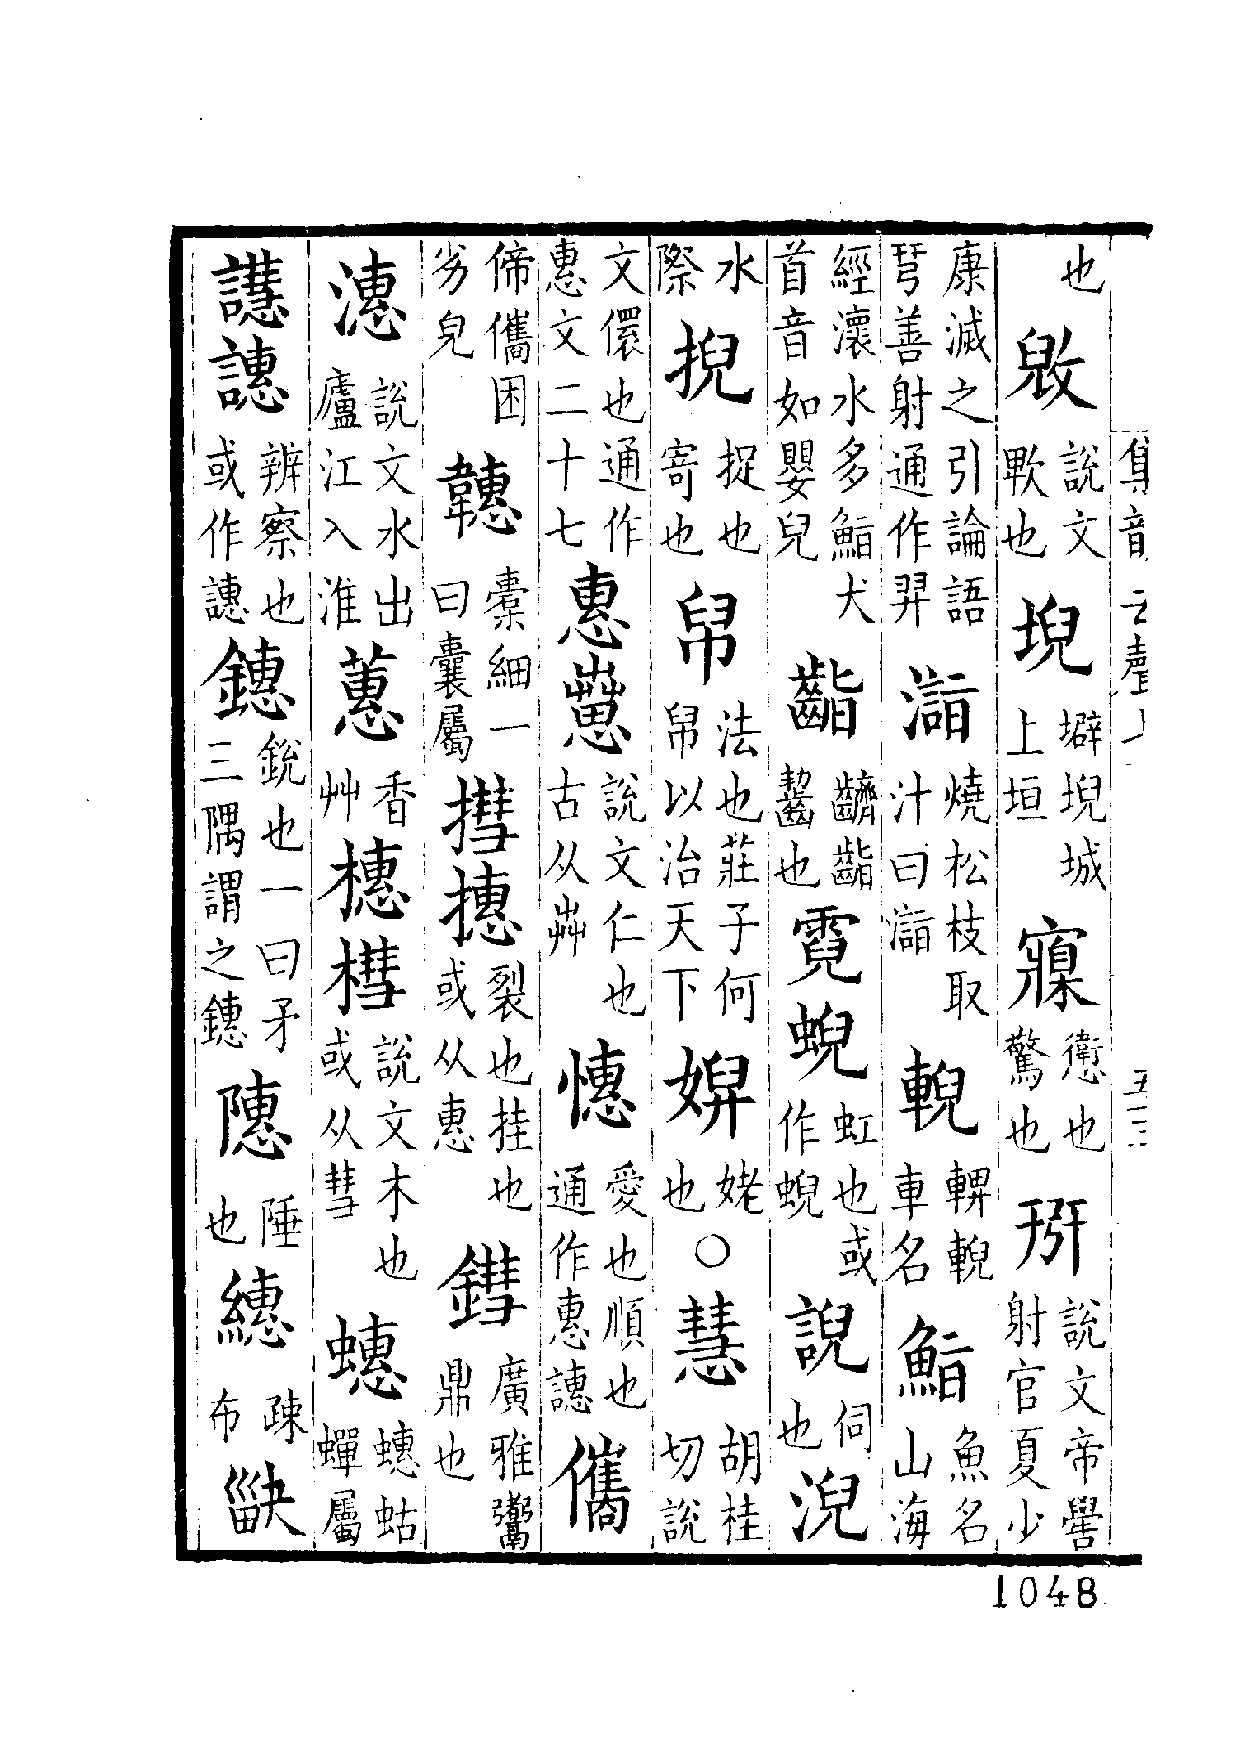 集韻 去聲上 五十三
也 敡 說文䡾也 堄 壀堄城上垣 寱 㦣也驚也 㺿 說文帝嚳射官夏少
康滅之引論語𢏗善射通作羿 㵽 燒松枝取汁曰㵽 輗 輫輗車名 鮨 魚名山海
經瀤水多鮨犬首音如嬰兒 齯 齯齯齧也 霓蜺 虹也或作蜺 誽 伺也 淣
水際 掜 捉也寄也 帠 法也莊子何帠以治天下 婗 姥也 〇 慧 胡桂切說
文儇也通作惠文二十七 惠𢤱 說文仁也古从芔 憓 愛也順也通作惠譓 㒞
偙㒞困劣皃 韢 橐細一曰囊屬 㨹㨤 裂也挂也或从惠 鏏 廣雅鬵鼎也
潓 說文水出廬江入淮 蕙 香艸 橞槥 說文木也或从彗 蟪 蟪蛄蟬屬
譿譓 辨察也或作譓 鏸 銳也一曰矛三隅謂之鏸 㥣 陲也 繐 疎布 䜅
1048